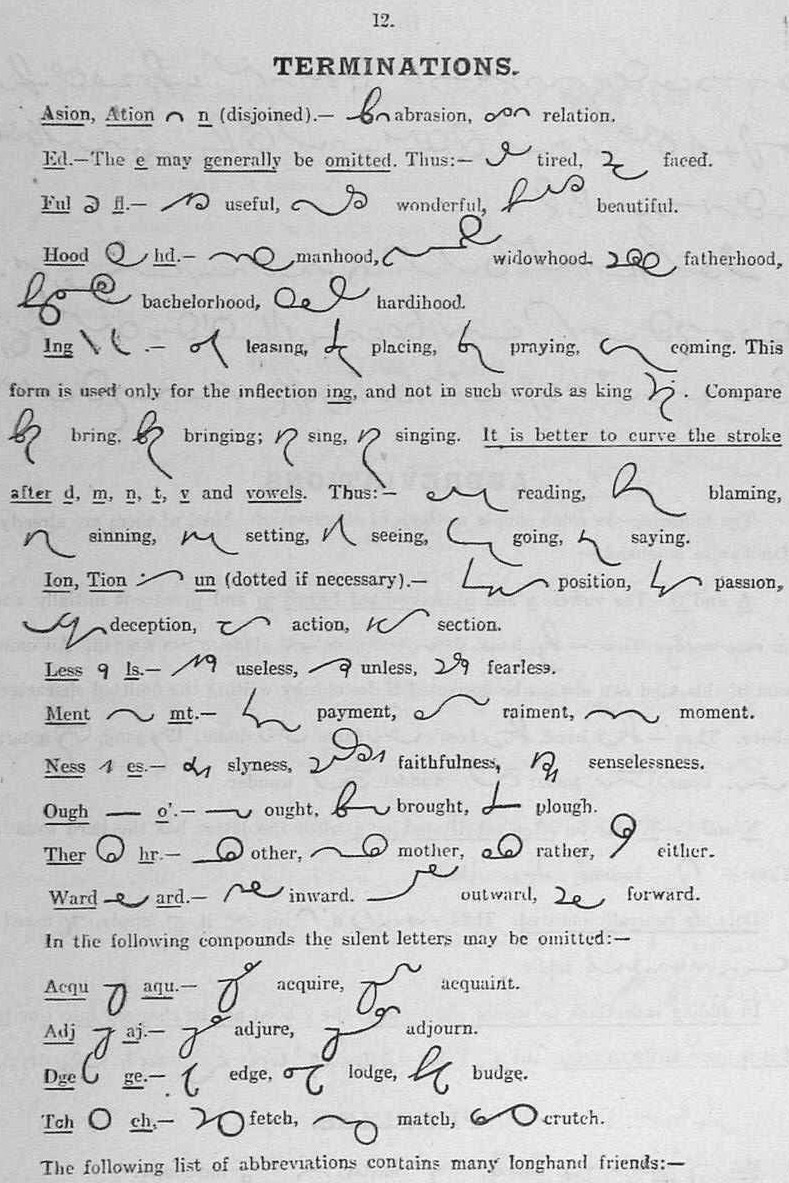 12.
TERMINATIONS.
Asion, Ation n (disjoined).— abrasion, relation.
Ed.—The e may generally be omitted. Thus:— tired, faced.
Ful fl.— useful, wonderful, beautiful.
Hood hd.— manhood, widowhood. fatherhood,
bachelorhood, hardihood.
Ing .— leasing, placing, praying, coming. This
form is used only for the inflection ing, and not in such words as king . Compare
bring. bringing; sing, singing. It is better to curve the stroke
after d, m, n, t, v and vowels. Thus:— reading, blaming,
sinning, setting, seeing, going, saying.
Ion, Tion un (dotted if necessary).— position, passion,
deception, action, section.
Less ls.— useless, unless, fearless.
Ment mt.— payment, raiment, moment.
Ness es.— slyness, faithfulness, senselessness.
Ough o'.— ought, brought, plough.
Ther hr.— other, mother, rather, either.
Ward ard.— inward. outward, forward.
In the following compounds the silent letters may be omitted:—
Acqu aqu.— acquire, acquaint.
Adj aj.— adjure, adjourn.
Dge ge.— edge, lodge, budge.
Tch ch.— fetch, match, crutch.
The following list of abbreviations contains many longhand friends:—